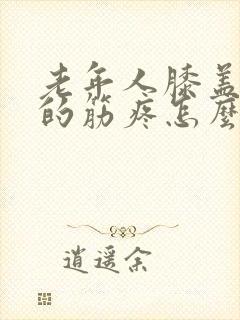 老年人膝盖
的筋疼怎麽
逍遥余